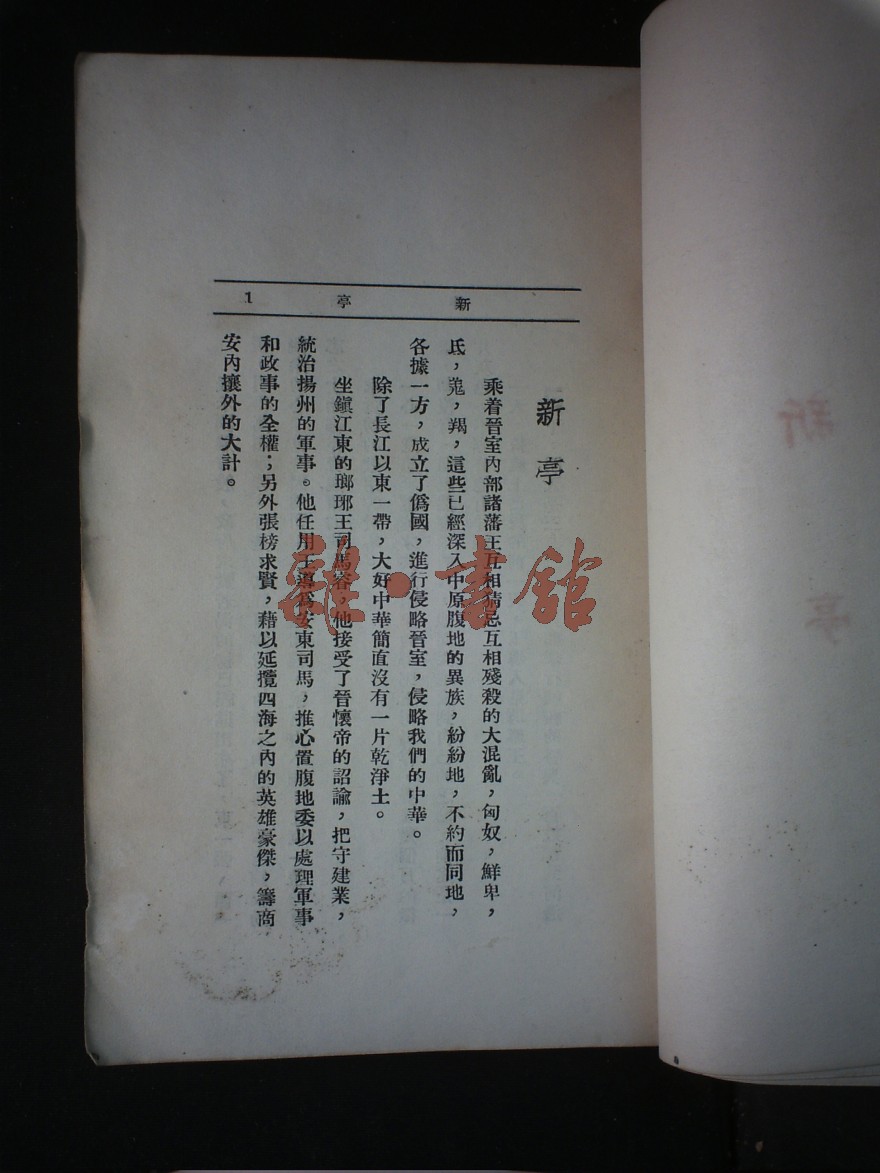 新亭 1
新亭
乘着晉室內部諸藩王互相猜忌互相殘殺的大混亂,匈奴,鮮卑,
氐,羌,羯,這些已經深入中原腹地的異族,紛紛地,不約而同地,
各據一方,成立了僞國,進行侵略晉室,侵略我們的中華。
除了長江以東一帶,大好中華簡直沒有一片乾淨土。
坐鎭江東的瑯琊王司馬睿,他接受了晉懷帝的詔諭,把守建業,
統治揚州的軍事。他任用王導爲安東司馬,推心置腹地委以處理軍事
和政事的全權;另外張榜求賢,藉以延攬四海之內的英雄豪傑,籌商
安內攘外的大計。
雜·書館
新亭